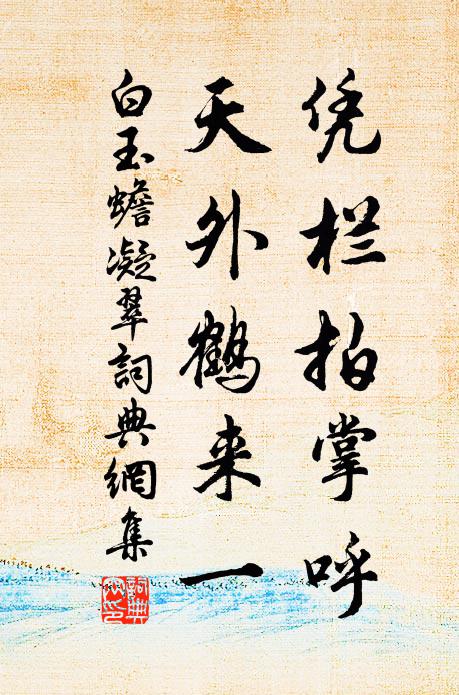 凭栏拍掌呼
天外鹤来一
白玉蟾凝翠詞典網集